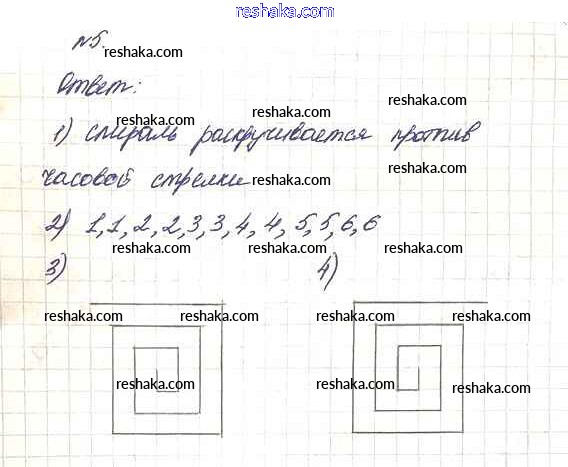 reshaka.com
№5.
reshaka.com reshaka.com
Ответ:
reshaka.com reshaka.com
1) спираль раскручивается против
часовой стрелки reshaka.com reshaka.com
2) 1, 1, 2, 2, 3, 3, 4, 4, 5, 5, 6, 6
reshaka.com reshaka.com reshaka.com
3) 4)
reshaka.com reshaka.com reshaka.com reshaka.com
reshaka.com reshaka.com reshaka.com